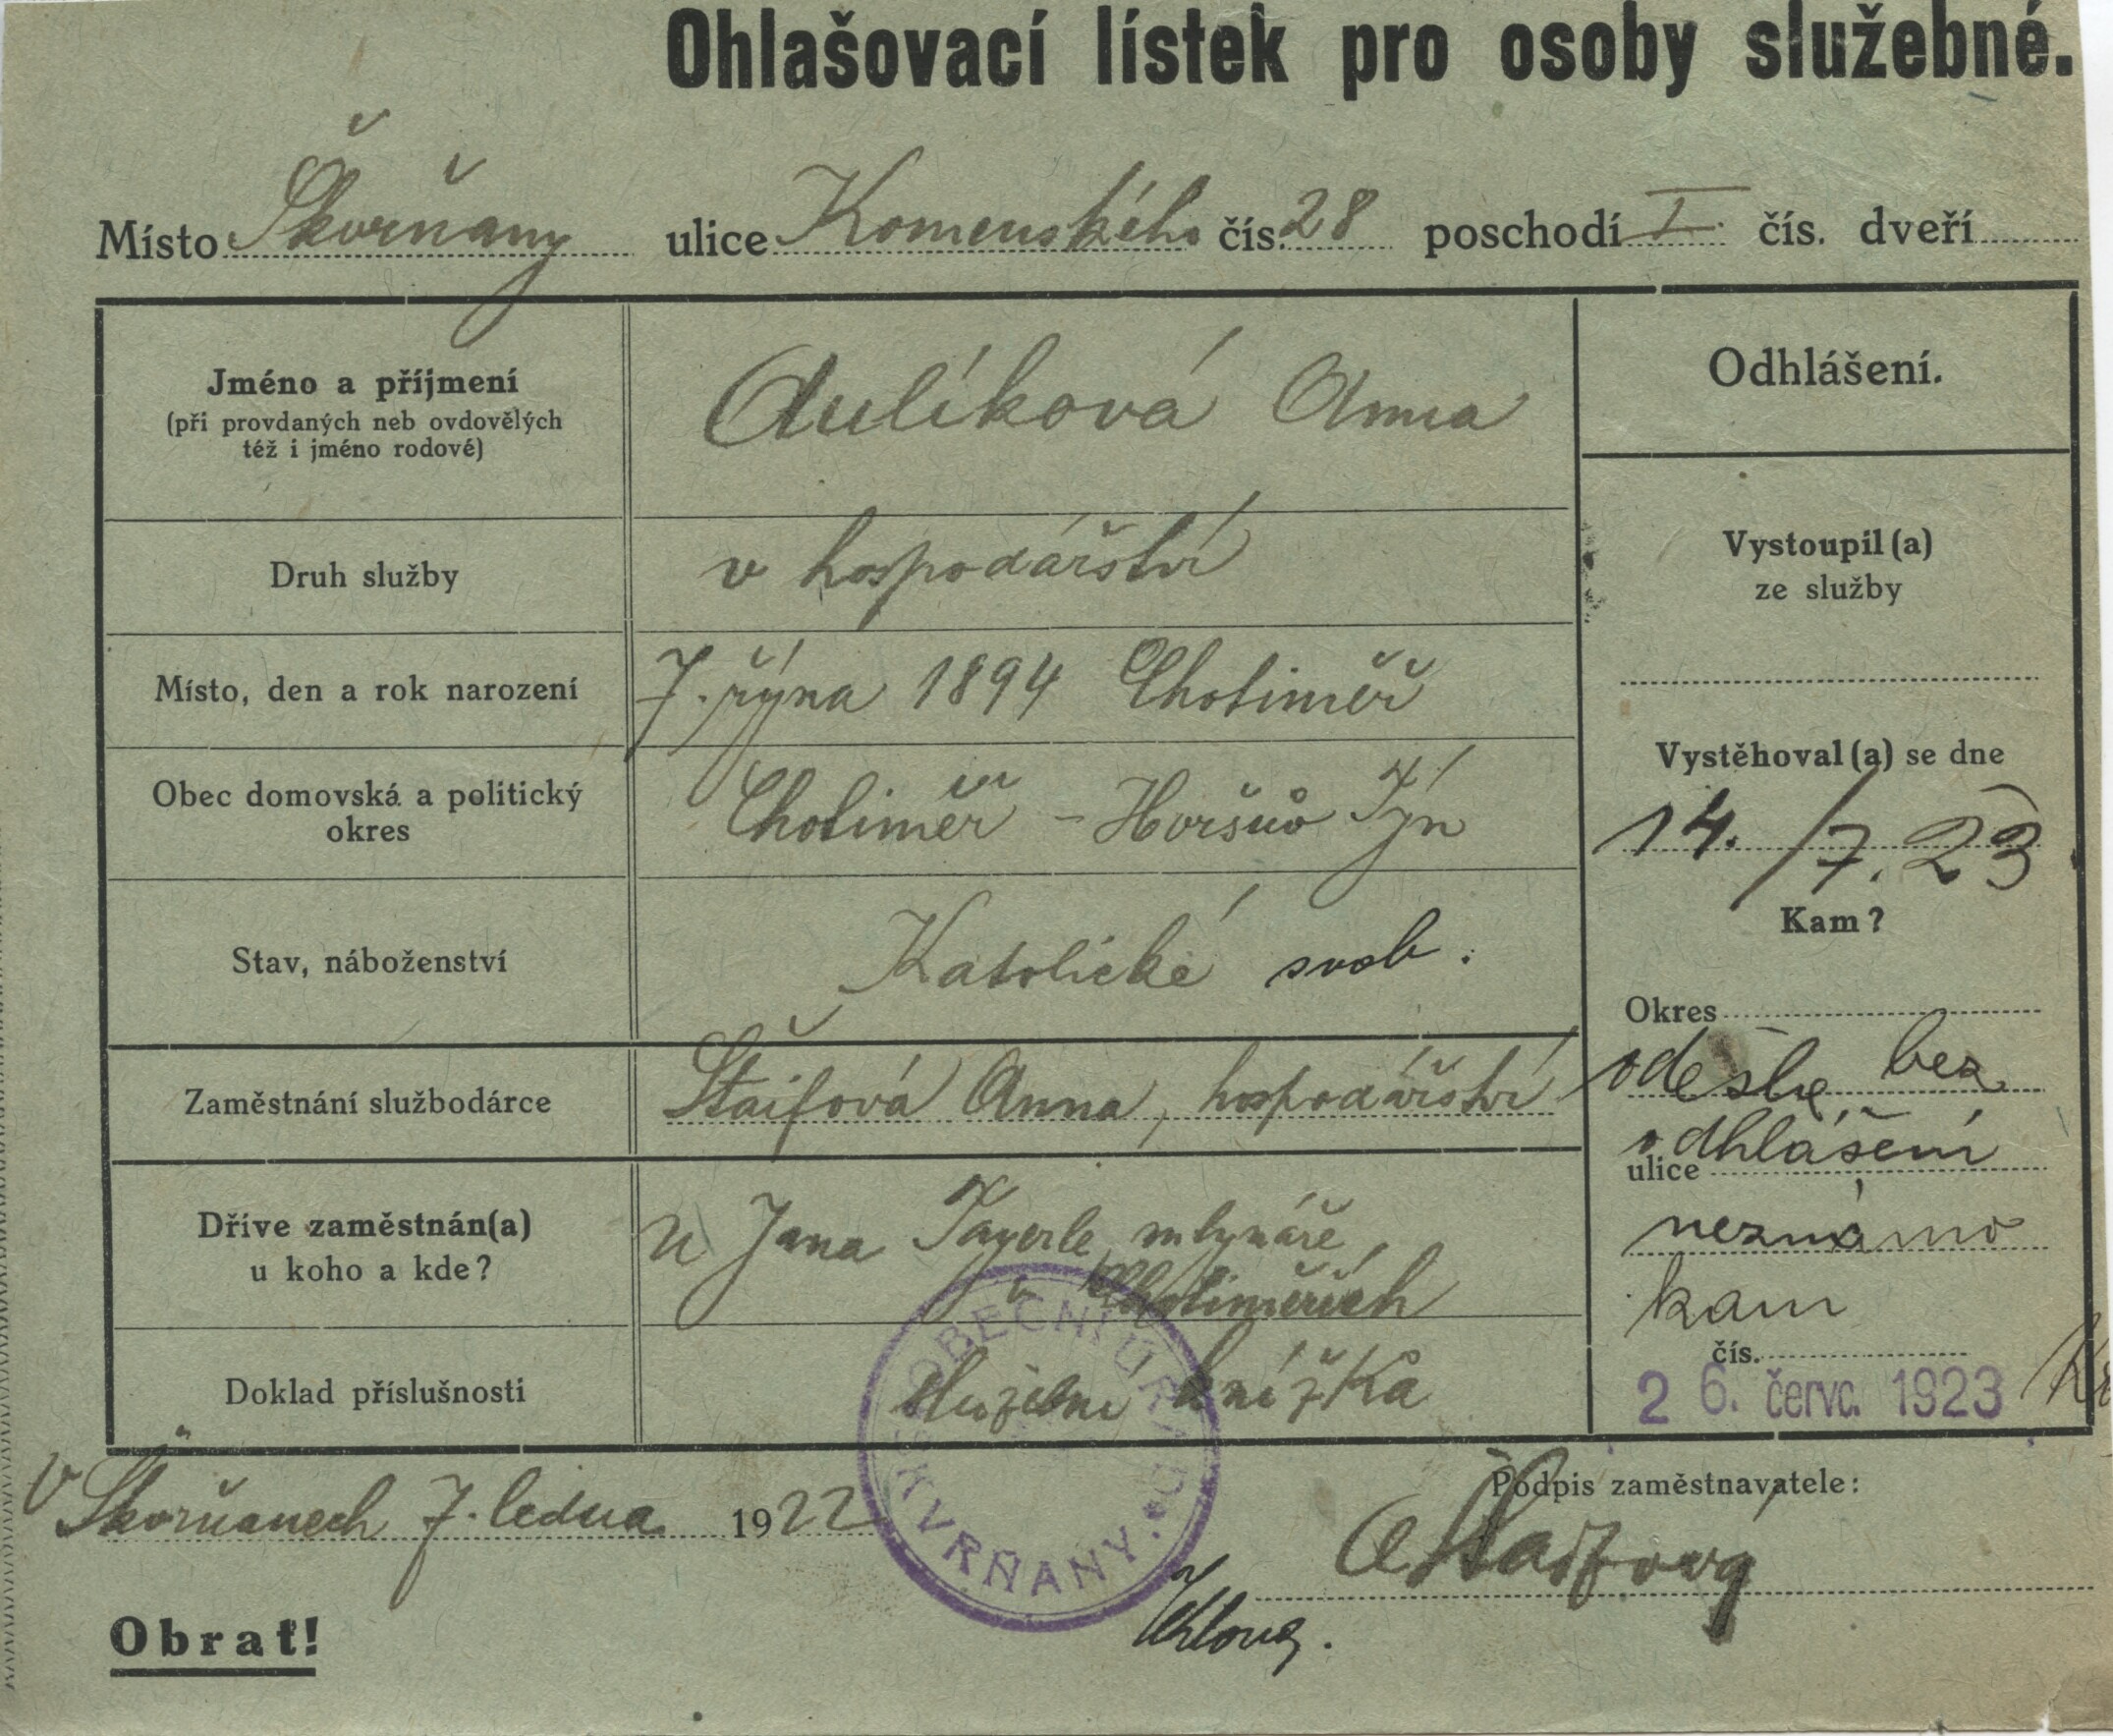 Ohlašovací lístek pro osoby služebné.
Místo Škvrňany ulice Komenského čís. 28 poschodí I. čís. dveří
Jméno a příjmení
(při provdaných neb ovdovělých
též i jméno rodové)
Aulíková Anna
Druh služby
v hospodářství
Místo, den a rok narození
7. října 1894 Chotiměř
Obec domovská a politický
okres
Chotiměř - Horšův Týn
Stav, náboženství
Katolické svob.
Zaměstnání službodárce
Štaifová Anna, hospodářství
Dříve zaměstnán(a)
u koho a kde?
u Jana Tayerle mlynáře,
v Chotiměřích
Doklad příslušnosti
služební knížka
Odhlášení.
Vystoupil (a)
ze služby
Vystěhoval (a) se dne
14./7. 23
Kam?
Okres
odešla bez
odhlášení
ulice
neznámo
kam
čís.
26. červc. 1923
OBECNÍ ÚŘAD
ŠKVRŇANY.
v Škvrňanech 7. ledna 1922
Podpis zaměstnavatele:
A Štaifová
Obrať!